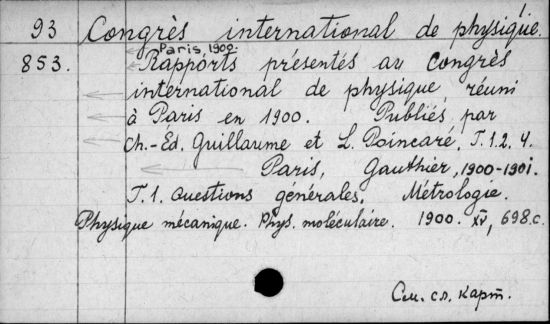 1
93 Congrès international de physique.
Paris, 1900.
853. Rapports présentés au Congrès
international de physique réuni
à Paris en 1900. Publiés par
Ch.-Éd. Guillaume et L. Poincaré, T.1.2. 4.
Paris, Gauthier, 1900-1901.
T.1. Questions générales. Métrologie.
Physique mécanique. Phys. moléculaire. 1900. XV, 698 c.
См. сл. карт.